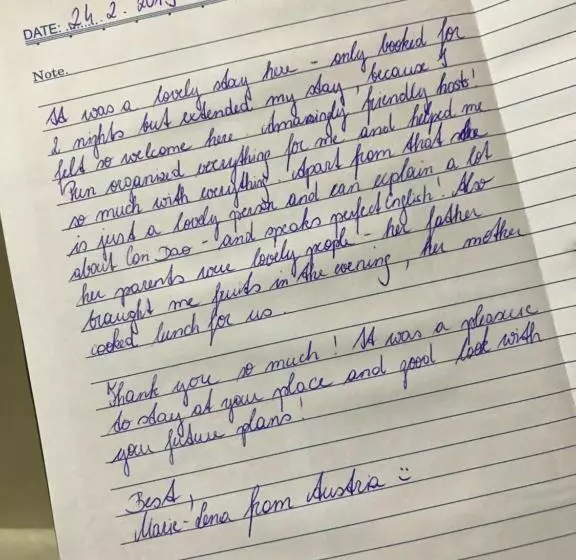 DATE: 24. 2. 2019
Note.
It was a lovely stay here - only booked for
2 nights but extended my stay, because I
felt so welcome here. Amazingly friendly hosts!
Pun organised everything for me and helped me
so much with everything. Apart from that she
is just a lovely person and can explain a lot
about Con Dao - and speaks perfect English! Also
her parents were lovely people - her father
braught me fruits in the evening, her mother
cooked lunch for us.
Thank you so much! It was a pleasure
to stay at your place and good look with
your future plans!
Best,
Marie-Lena from Austria :)